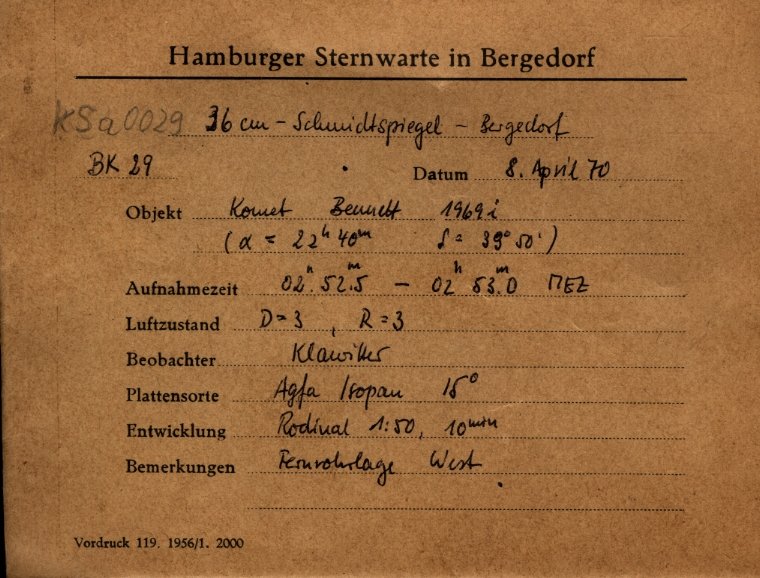 Hamburger Sternwarte in Bergedorf
KSa0029 36 cm - Schmidtspiegel - Bergedorf
BK 29 Datum 8. April 70
Objekt Komet Bennett 1969i
(α = 22h 40m δ = 39° 50')
Aufnahmezeit 02h 52m.5 - 02h 53m.0 MEZ
Luftzustand D=3, R=3
Beobachter Klawitter
Plattensorte Agfa Isopan 15°
Entwicklung Rodinal 1:50, 10min
Bemerkungen Fernrohrlage West
Vordruck 119. 1956/1. 2000